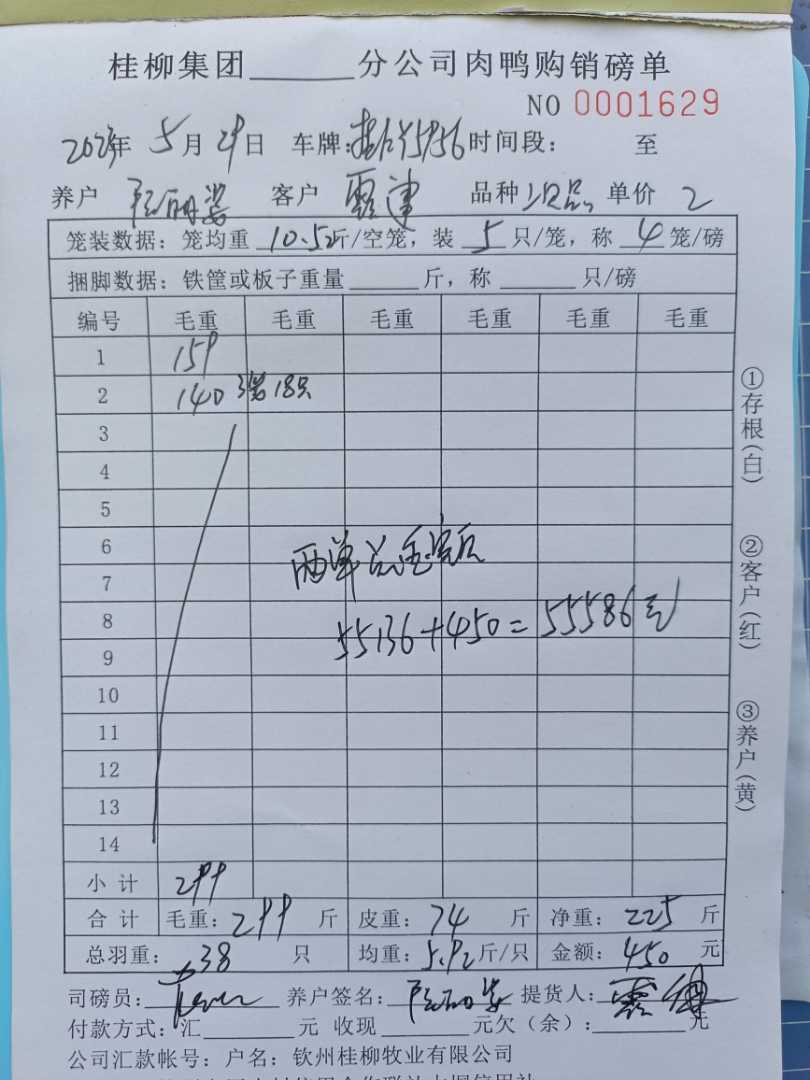 桂柳集团______分公司肉鸭购销磅单
NO 0001629
2023年 5月29日 车牌: 时间段: 至
养户 客户 品种 次品 单价 2
笼装数据: 笼均重 10.5斤/空笼, 装 5 只/笼, 称 4 笼/磅
捆脚数据: 铁筐或板子重量______斤, 称______只/磅
编号 毛重 毛重 毛重 毛重 毛重 毛重
1 159
2 140 3笼18只
3
4
5
6
7
8
9
10
11
12
13
14
两单总金额
55136+450=55586元
小计 299
合计 毛重: 299 斤 皮重: 74 斤 净重: 225 斤
总羽重: 38 只 均重: 5.92斤/只 金额: 450 元
司磅员: 养户签名: 提货人:
付款方式: 汇______元 收现______元欠(余):______元
公司汇款帐号: 户名: 钦州桂柳牧业有限公司
①存根(白)
②客户(红)
③养户(黄)